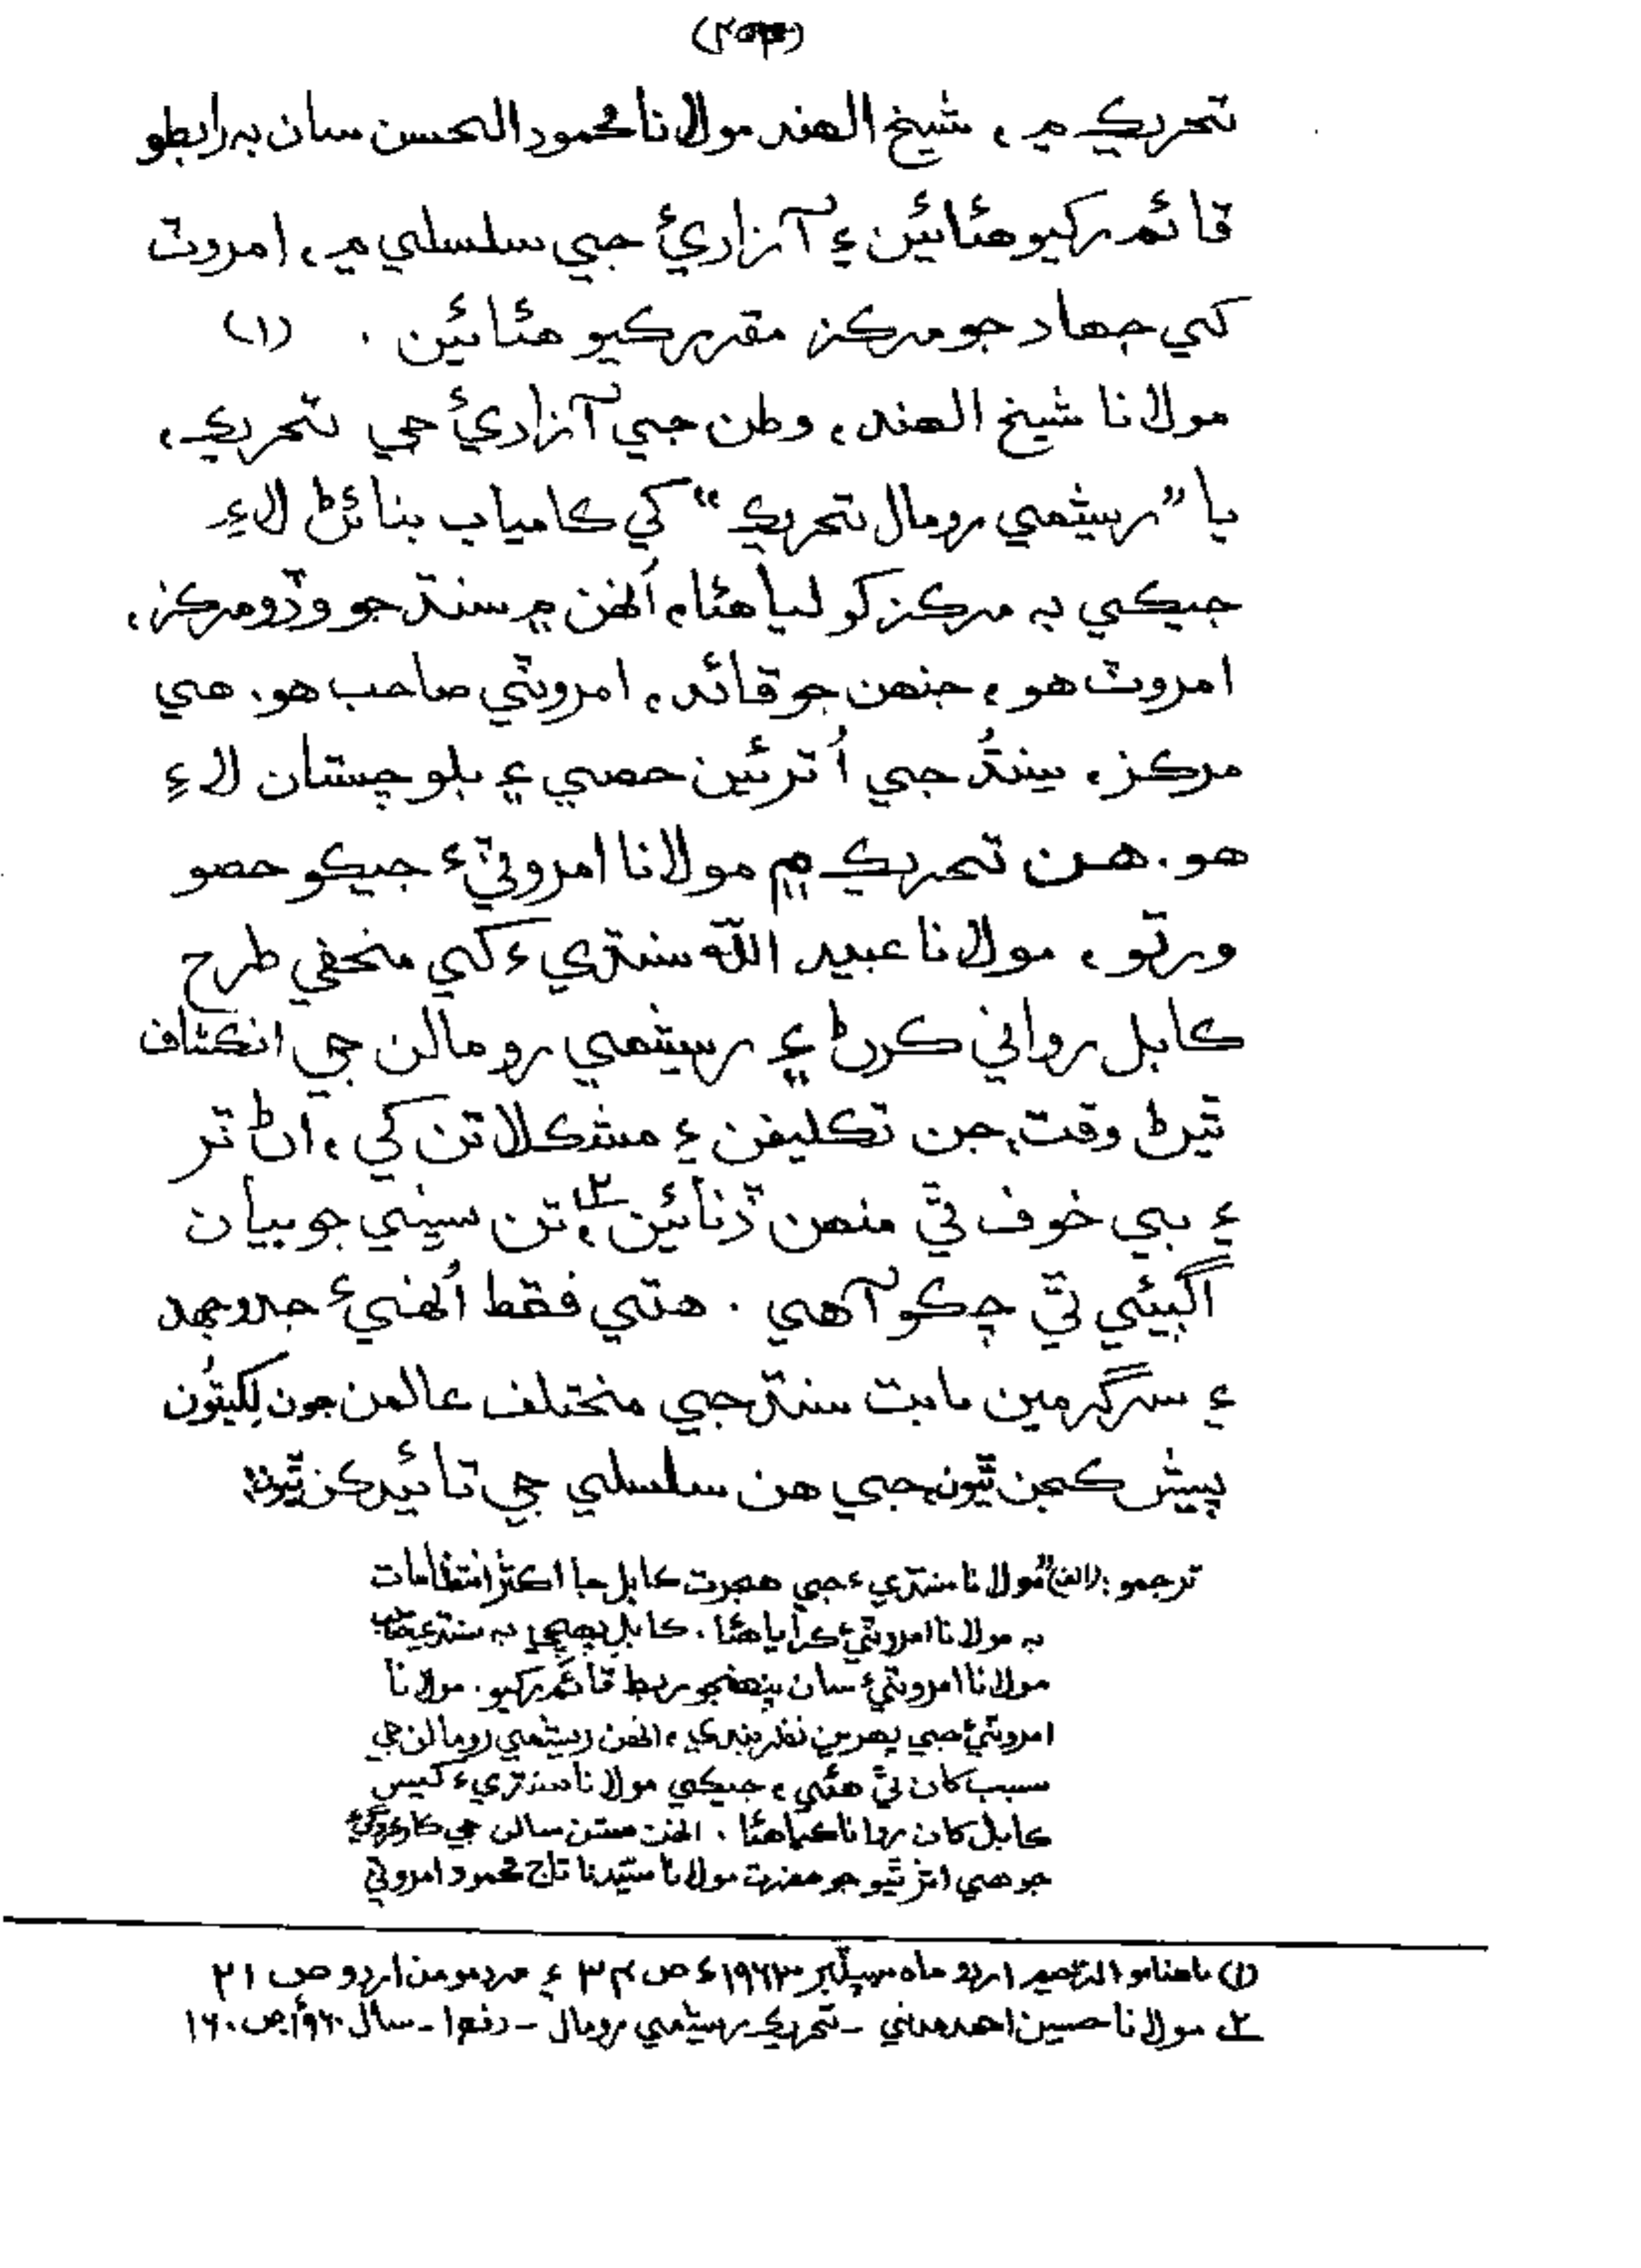 تحريڪ ۾، شيخ الهند مولانا محمود الحسن سان به رابطو
قائم رکيو هئائين ۽ آزاديءَ جي سلسلي ۾، امروٽ
کي جهاد جو مرڪز مقرر ڪيو هئائين. (١)
مولانا شيخ الهند، وطن جي آزاديءَ جي تحريڪ،
يا ”ريشمي رومال تحريڪ“ کي ڪامياب بنائڻ لاءِ
جيڪي به مرڪز کوليا هئا، اُنهن ۾ سنڌ جو وڏو مرڪز،
امروٽ هو، جنهن جو قائد، امروٽي صاحب هو. هي
مرڪز، سنڌ جي اُترئين حصي ۽ بلوچستان لاءِ
هو. هن تحريڪ ۾ مولانا امروٽيءَ جيڪو حصو
ورتو، مولانا عبيد الله سنڌيءَ کي مخفي طرح
ڪابل رواني ڪرڻ ۽ ريشمي رومالن جي انڪشاف
ٿيڻ وقت، جن تڪليفن ۽ مشڪلاتن کي، اڻ تر
۽ بي خوف ٿي منهن ڏنائين ٢، تن سڀني جو بيان
اڳيئي ٿي چڪو آهي. هتي فقط اُنهيءَ جدوجهد
۽ سرگرمين بابت سنڌ جي مختلف عالمن جون لکيتون
پيش ڪجن ٿيون، جي هن سلسلي جي تائيد ڪن ٿيون:
ترجمو: (الف) ”مولانا سنڌيءَ جي هجرت ڪابل جا اڪثر انتظامات
به مولانا امروٽيءَ ڪرايا هئا. ڪابل پهچي به سنڌي صاحب
مولانا امروٽيءَ سان پنهنجو ربط قائم رکيو. مولانا
امروٽيءَ جي پهرين نظر بندي، انهن ريشمي رومالن جي
سبب کان ٿي هئي، جيڪي مولانا سنڌيءَ کيس
ڪابل کان روانا ڪيا هئا. انهن سالن جي
جو هي اثر ٿيو جو حضرت مولانا سيدنا تاج محمود امروٽي
(١) ماهنامو الرحيم اردو ماه سيپٽمبر ١٩٦٣ع ص ٣٤ ۽ مرد مومن اردو ص ٢١
٢. مولانا حسين احمد مدني - تحريڪ ريشمي رومال - دفع ١ - سال ١٩٦٠ ص ١٦٠